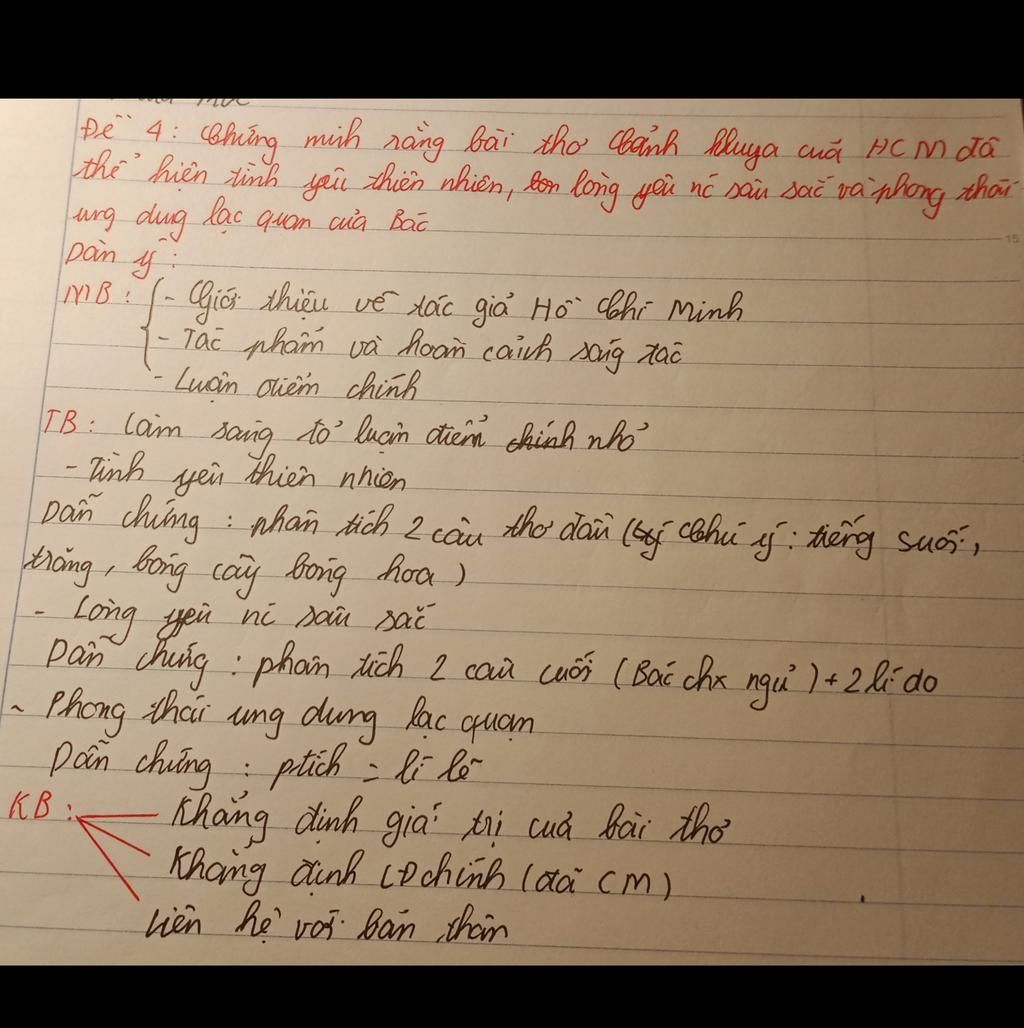 Đề 4: Chứng minh rằng bài thơ Cảnh khuya của HCM đã
thể hiện tình yêu thiên nhiên, lòng yêu nc sâu sắc và phong thái
ung dung lạc quan của Bác
Dàn ý:
MB: - Giới thiệu về tác giả Hồ Chí Minh
- Tác phẩm và hoàn cảnh sáng tác
- Luận điểm chính
TB: Làm sáng tỏ luận điểm chính nhỏ
- Tình yêu thiên nhiên
Dẫn chứng: phân tích 2 câu thơ đầu (Chú ý: tiếng suối,
trăng, bóng cây bóng hoa)
- Lòng yêu nc sâu sắc
Dẫn chứng: phân tích 2 câu cuối (Bác chx ngủ) + 2 lí do
- Phong thái ung dung lạc quan
Dẫn chứng: ptích = lí lẽ
KB: Khẳng định giá trị của bài thơ
Khẳng định LĐ chính (đã CM)
Liên hệ với bản thân
15